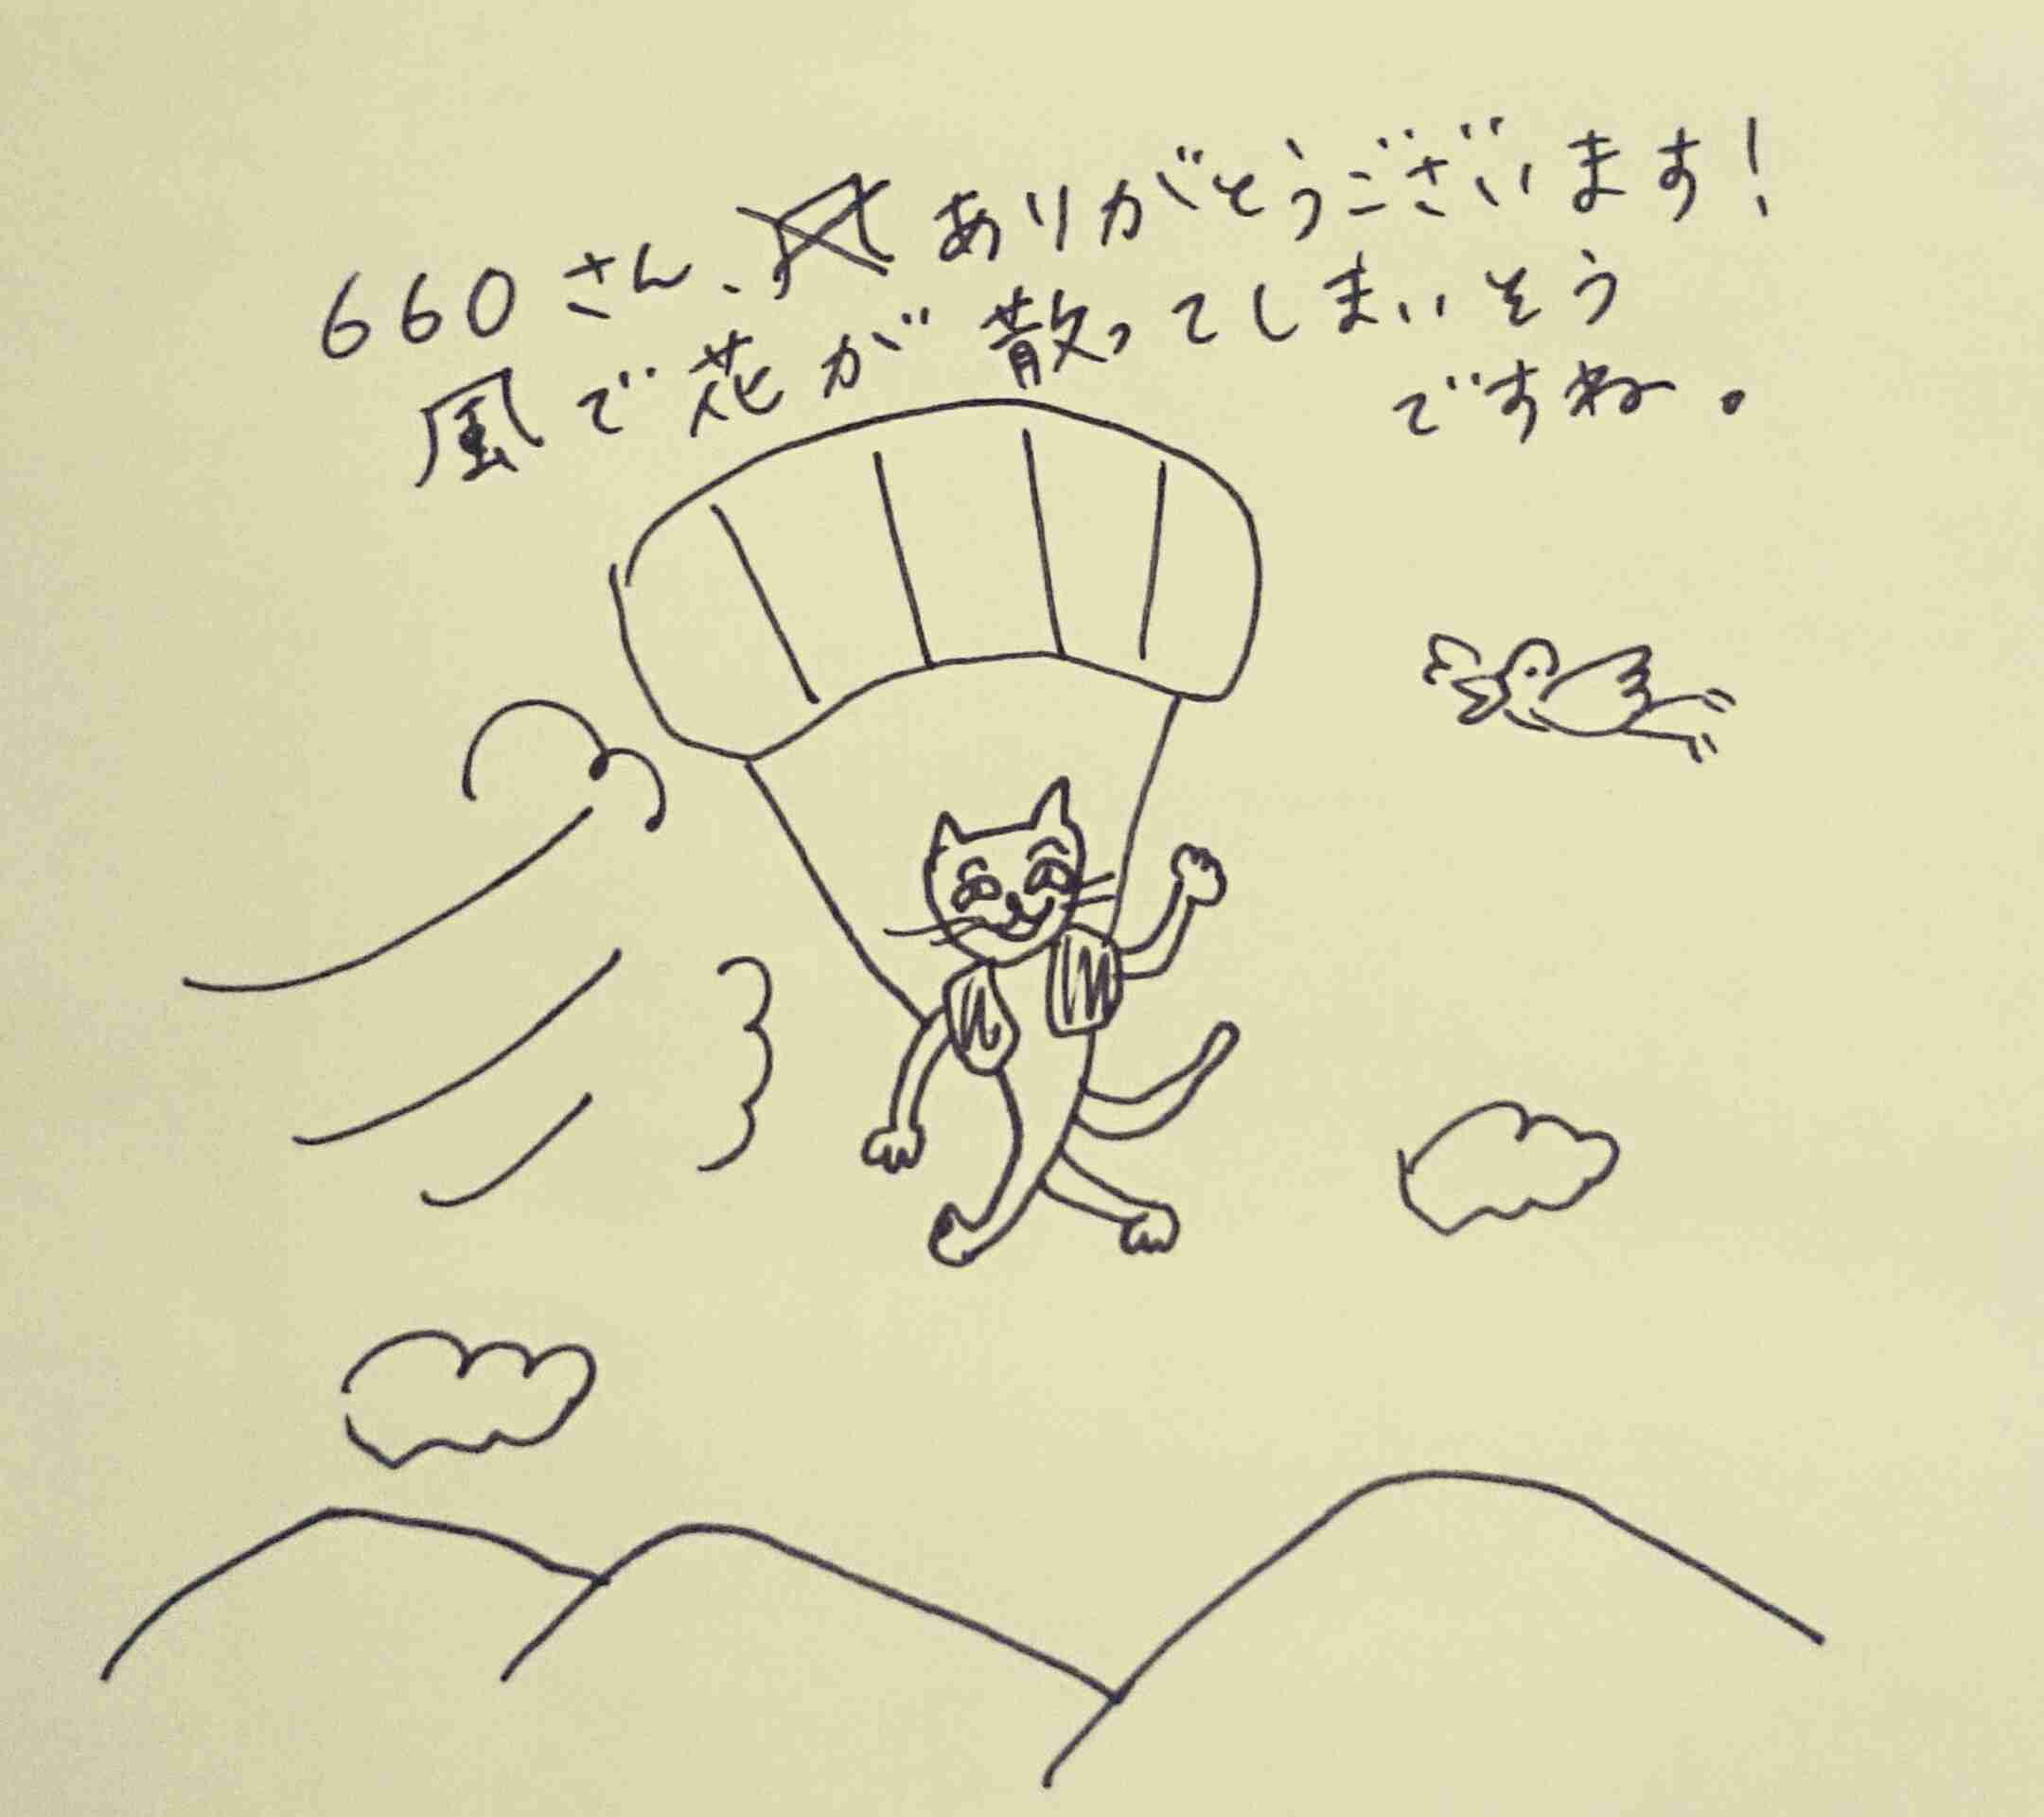 660さん、ありがとうございます!
風で花が散ってしまいそう
ですね。